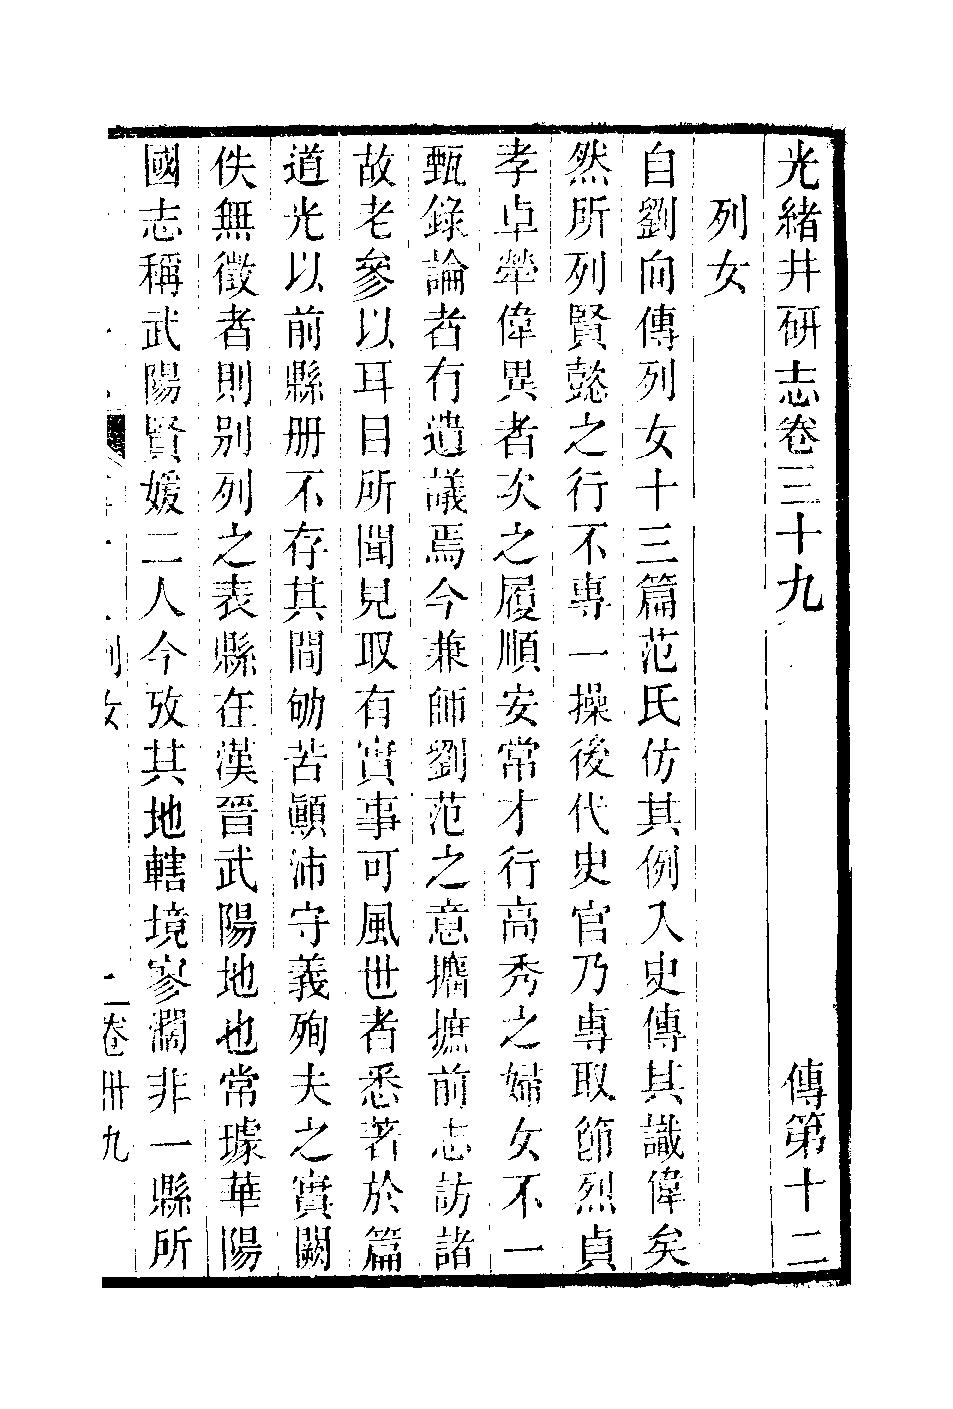 光緒井研志卷三十九 傳第十二
列女
自劉向傳列女十三篇范氏仿其例入史傳其識偉矣
然所列賢懿之行不專一操後代史官乃專取節烈貞
孝卓犖偉異者次之履順安常才行高秀之婦女不一
甄錄論者有遺議焉今兼師劉范之意攟摭前志訪諸
故老參以耳目所聞見取有實事可風世者悉著於篇
道光以前縣册不存其間劬苦顚沛守義殉夫之實闕
佚無徵者則別列之表縣在漢晉武陽地也常璩華陽
國志稱武陽賢媛二人今攷其地轄境寥濶非一縣所
列女 一 卷卌九